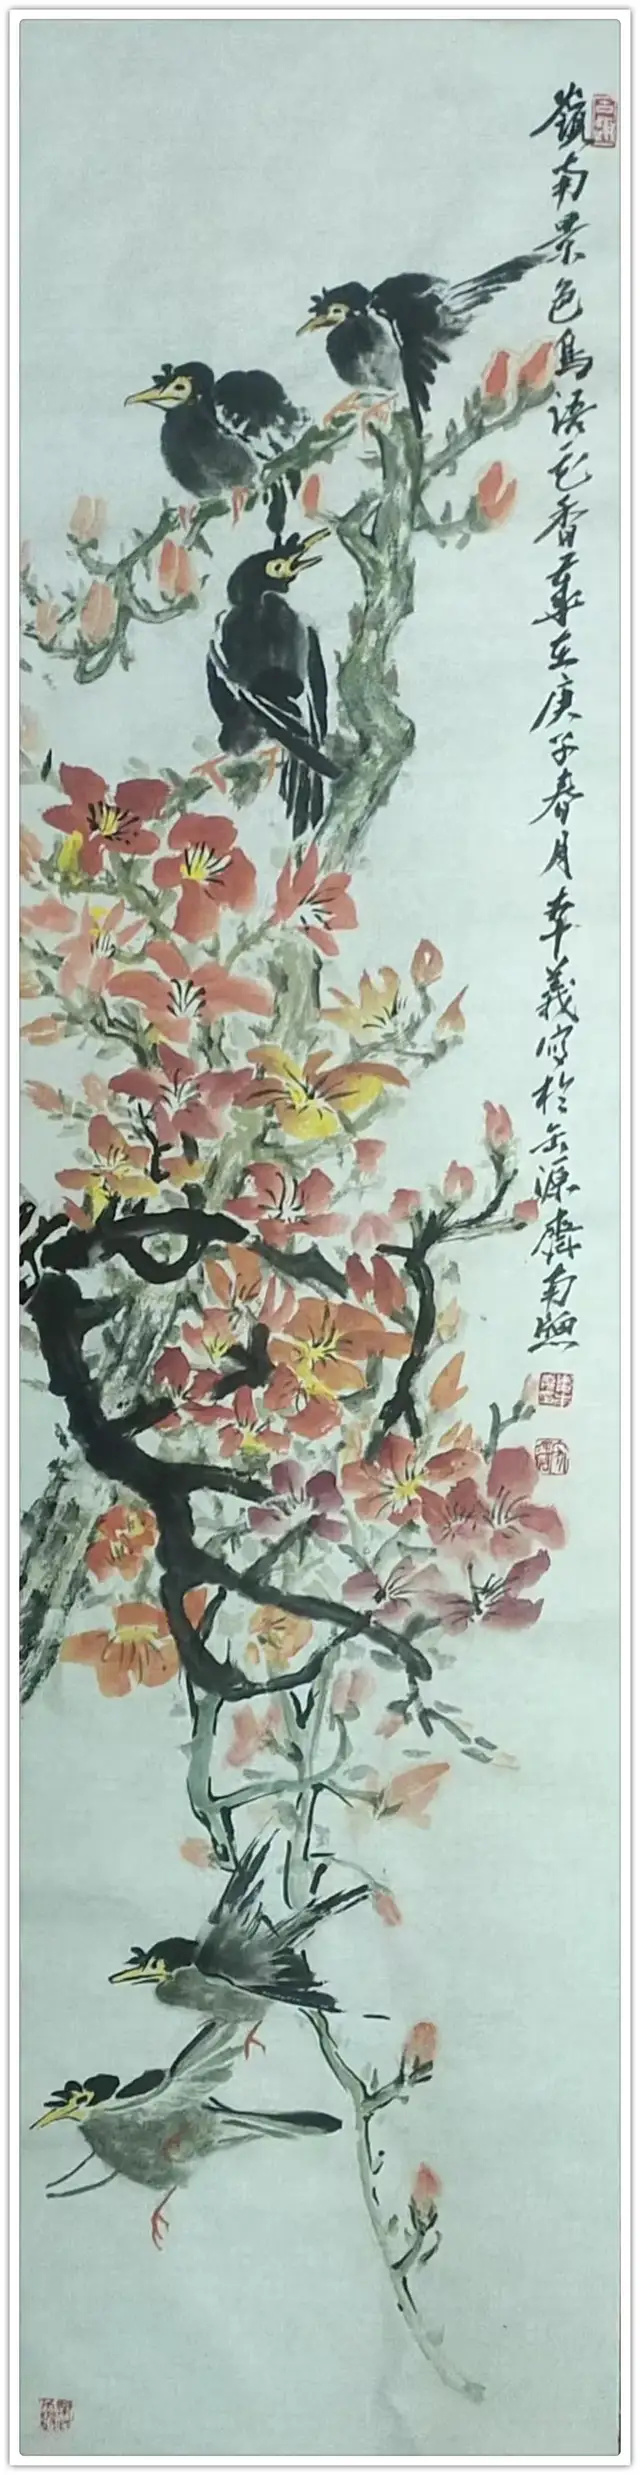 嶺南景色鳥語花香歲在庚子春月幸義寫於岳源齋南牕